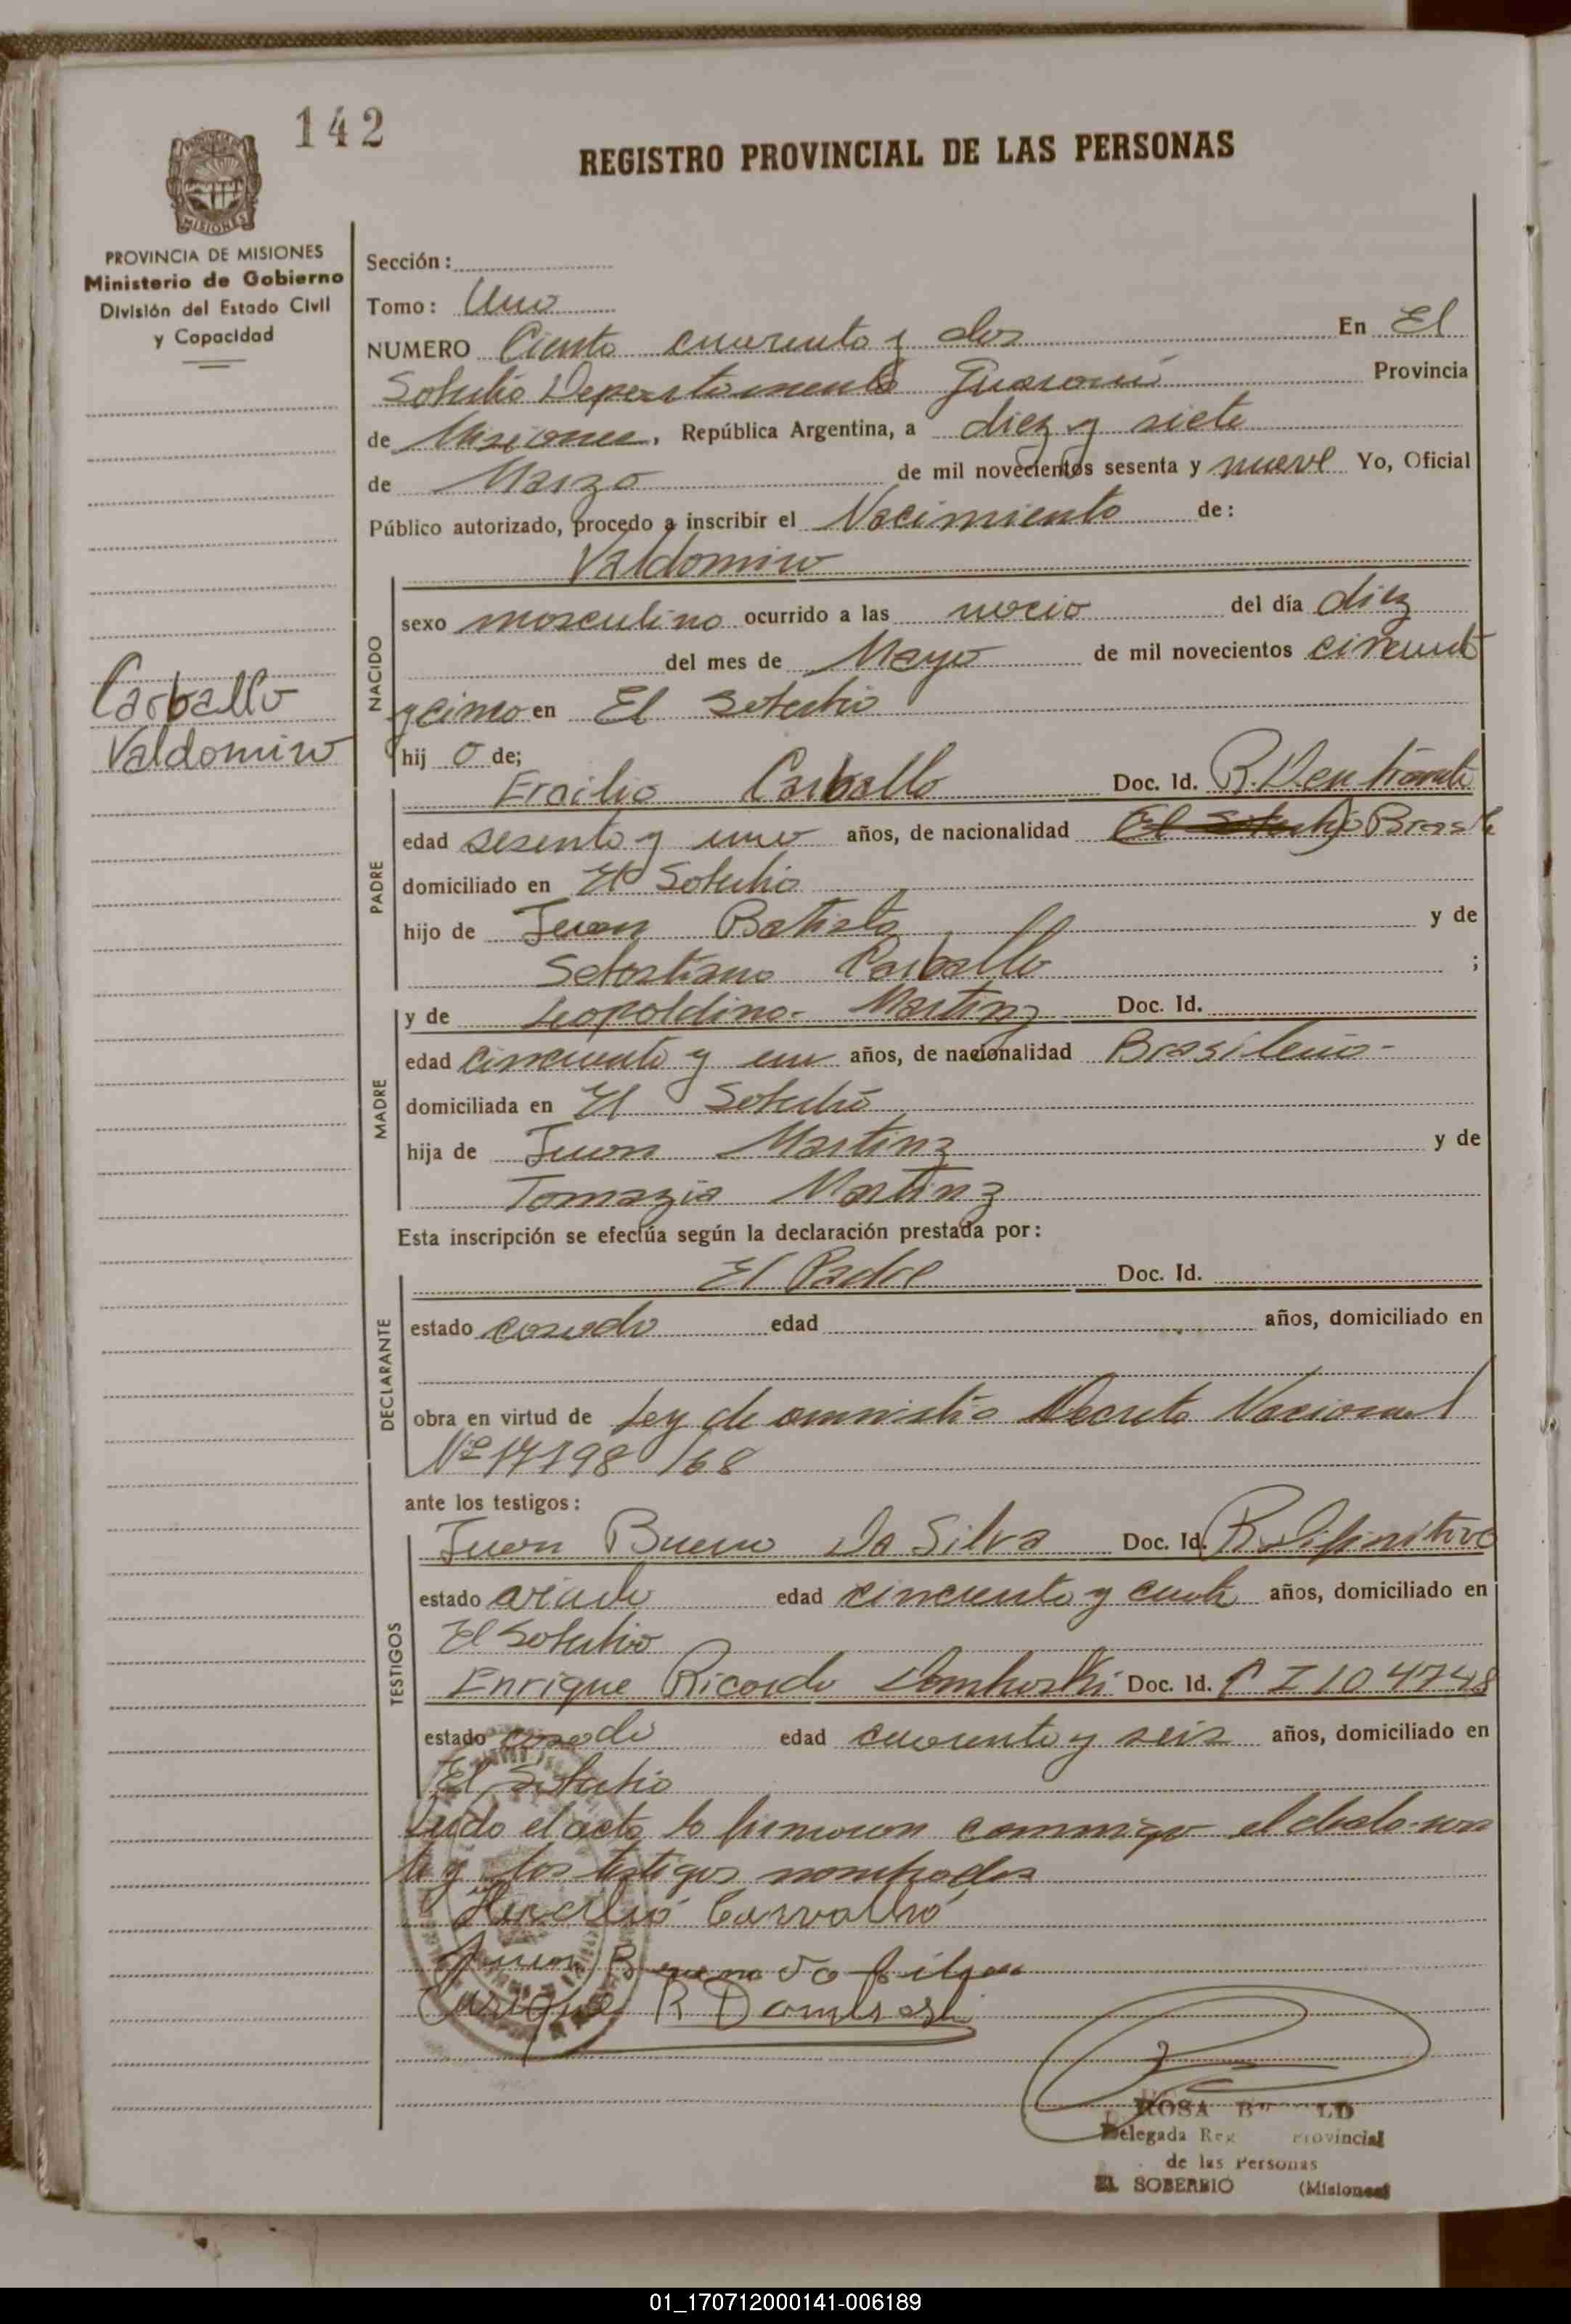 142
REGISTRO PROVINCIAL DE LAS PERSONAS
MISIONES
PROVINCIA DE MISIONES
Ministerio de Gobierno
División del Estado Civil
y Capacidad
Sección:
Tomo: Uno
NUMERO Ciento cuarenta y dos En El
Soberbio Departamento Guaraní Provincia
de Misiones, República Argentina, a diez y siete
de Marzo de mil novecientos sesenta y nueve Yo, Oficial
Público autorizado, procedo a inscribir el Nacimiento de:
Valdomiro
NACIDO
sexo masculino ocurrido a las del día diez
del mes de Mayo de mil novecientos cincuenta
y cinco en El Soberbio
hijo de;
Carballo
Valdomiro
PADRE
Ercilio Carballo Doc. Id.
edad sesenta y uno años, de nacionalidad El Soberbio Brasile
domiciliado en El Soberbio
hijo de Juan Batista y de
Sebastiana Carballo ;
MADRE
y de Leopoldina Martinz Doc. Id.
edad cincuenta y un años, de nacionalidad Brasileña-
domiciliada en El Soberbio
hija de Juan Martinz y de
Tomazia Martinz
Esta inscripción se efectúa según la declaración prestada por:
DECLARANTE
El Padre Doc. Id.
estado casado edad años, domiciliado en
obra en virtud de Ley de amnistia Decreto Nacional
Nº 17798/68
ante los testigos:
TESTIGOS
Juan Bueno Da Silva Doc. Id. R. Difinitivo
estado viudo edad cincuenta y años, domiciliado en
El Soberbio
Enrique Ricardo Domboski Doc. Id. C I 104748
estado casado edad cuarenta y seis años, domiciliado en
El Soberbio
Leido el acto lo firmaron conmigo el declaran
te y los testigos nombrados
Hercilio Carvalho
Juan Bueno Da Silva
Enrique R Domboski
ROSA
Delegada Reg Provincial
de las Personas
EL SOBERBIO (Misiones)
01_170712000141-006189